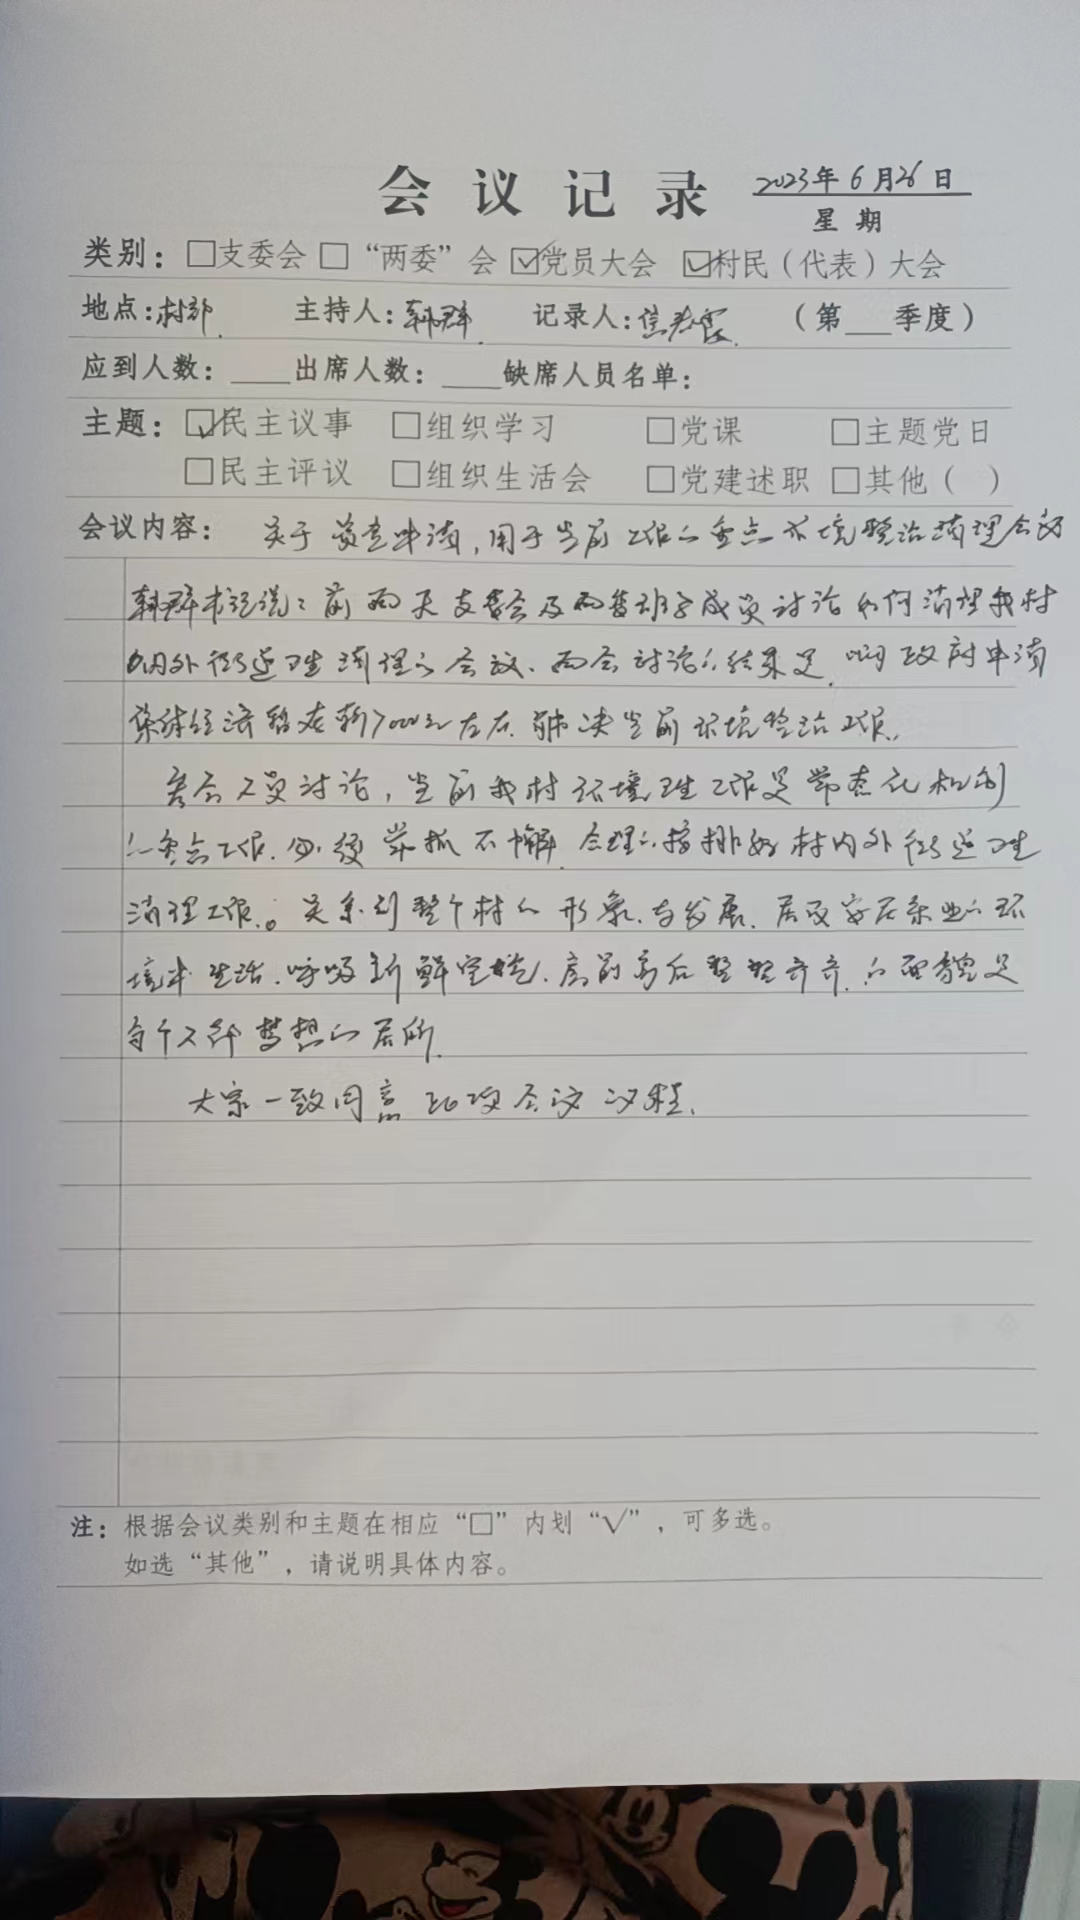 会议记录 2023年6月26日
星期
类别：□支委会 □“两委”会 ☑党员大会 ☑村民（代表）大会
地点：村部. 主持人：韩群. 记录人：焦 （第___季度）
应到人数：____出席人数：____缺席人员名单：
主题：☑民主议事 □组织学习 □党课 □主题党日
□民主评议 □组织生活会 □党建述职 □其他（ ）
会议内容： 关于资金申请,用于当前工作的重点环境整治清理会议
韩群书记说：前两天支委会及两委班子成员讨论如何清理我村
内外街道卫生清理的会议、两会讨论的结果是.向政府申请
集体经济 7000元左右.解决当前环境整治工作.
参会人员讨论,当前我村环境卫生工作是常态化机制
的重点工作.必须常抓不懈.合理的按排好村内外街道卫生
清理工作.。关系到整个村的形象.与发展.居民安居乐业的环
境中生活.呼吸新鲜空气.房前房后整整齐齐.的面貌是
每个人 梦想的居所.
大家一致同意此项会议议程.
注：根据会议类别和主题在相应“□”内划“√”，可多选。
如选“其他”，请说明具体内容。